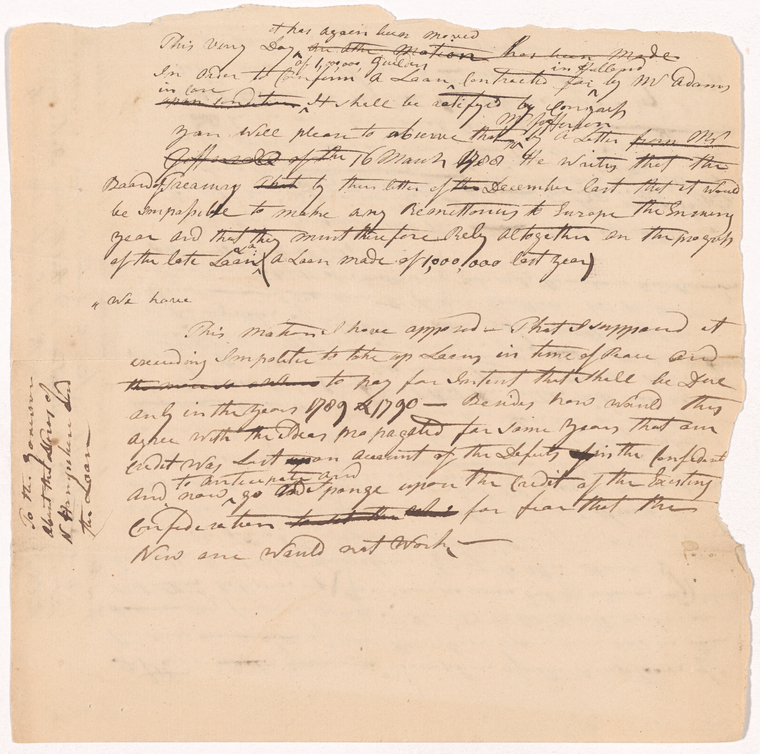 it has again been moved
This very Day on the Motion has been Made
of 1,000,000 Guilders in Holland
In order to Confirm a Loan Contracted for by Mr Adams
in case
upon condition It shall be ratifyed by Congress
Mr Jefferson
you will please to observe that by a Letter from Mr
of the 16 March 1788 He writes that the
Board of Treasury by their letter of the December last that it would
be Impossible to make any Remittances to Europe the Ensuing
year and that they must therefore Rely altogether on the progress
of the late Loan (a Loan made of 1,000,000 last year)
"We have
This motion I have opposed — That I supposed it
exceeding Impolitic to take up Loans in time of Peace and
to pay for Intrest that shall be Due
only in the years 1789 & 1790 — Besides how would this
agree with the Ideas propagated for some years that our
Credit was Lost upon account of the Defects in the Confederat
to anticipate and
and now go and sponge upon the Credit of the Existing
Confederation for fear that the
New one would not Work —
To the Govenor
about the Stores of
N Hampshire and
the Loan